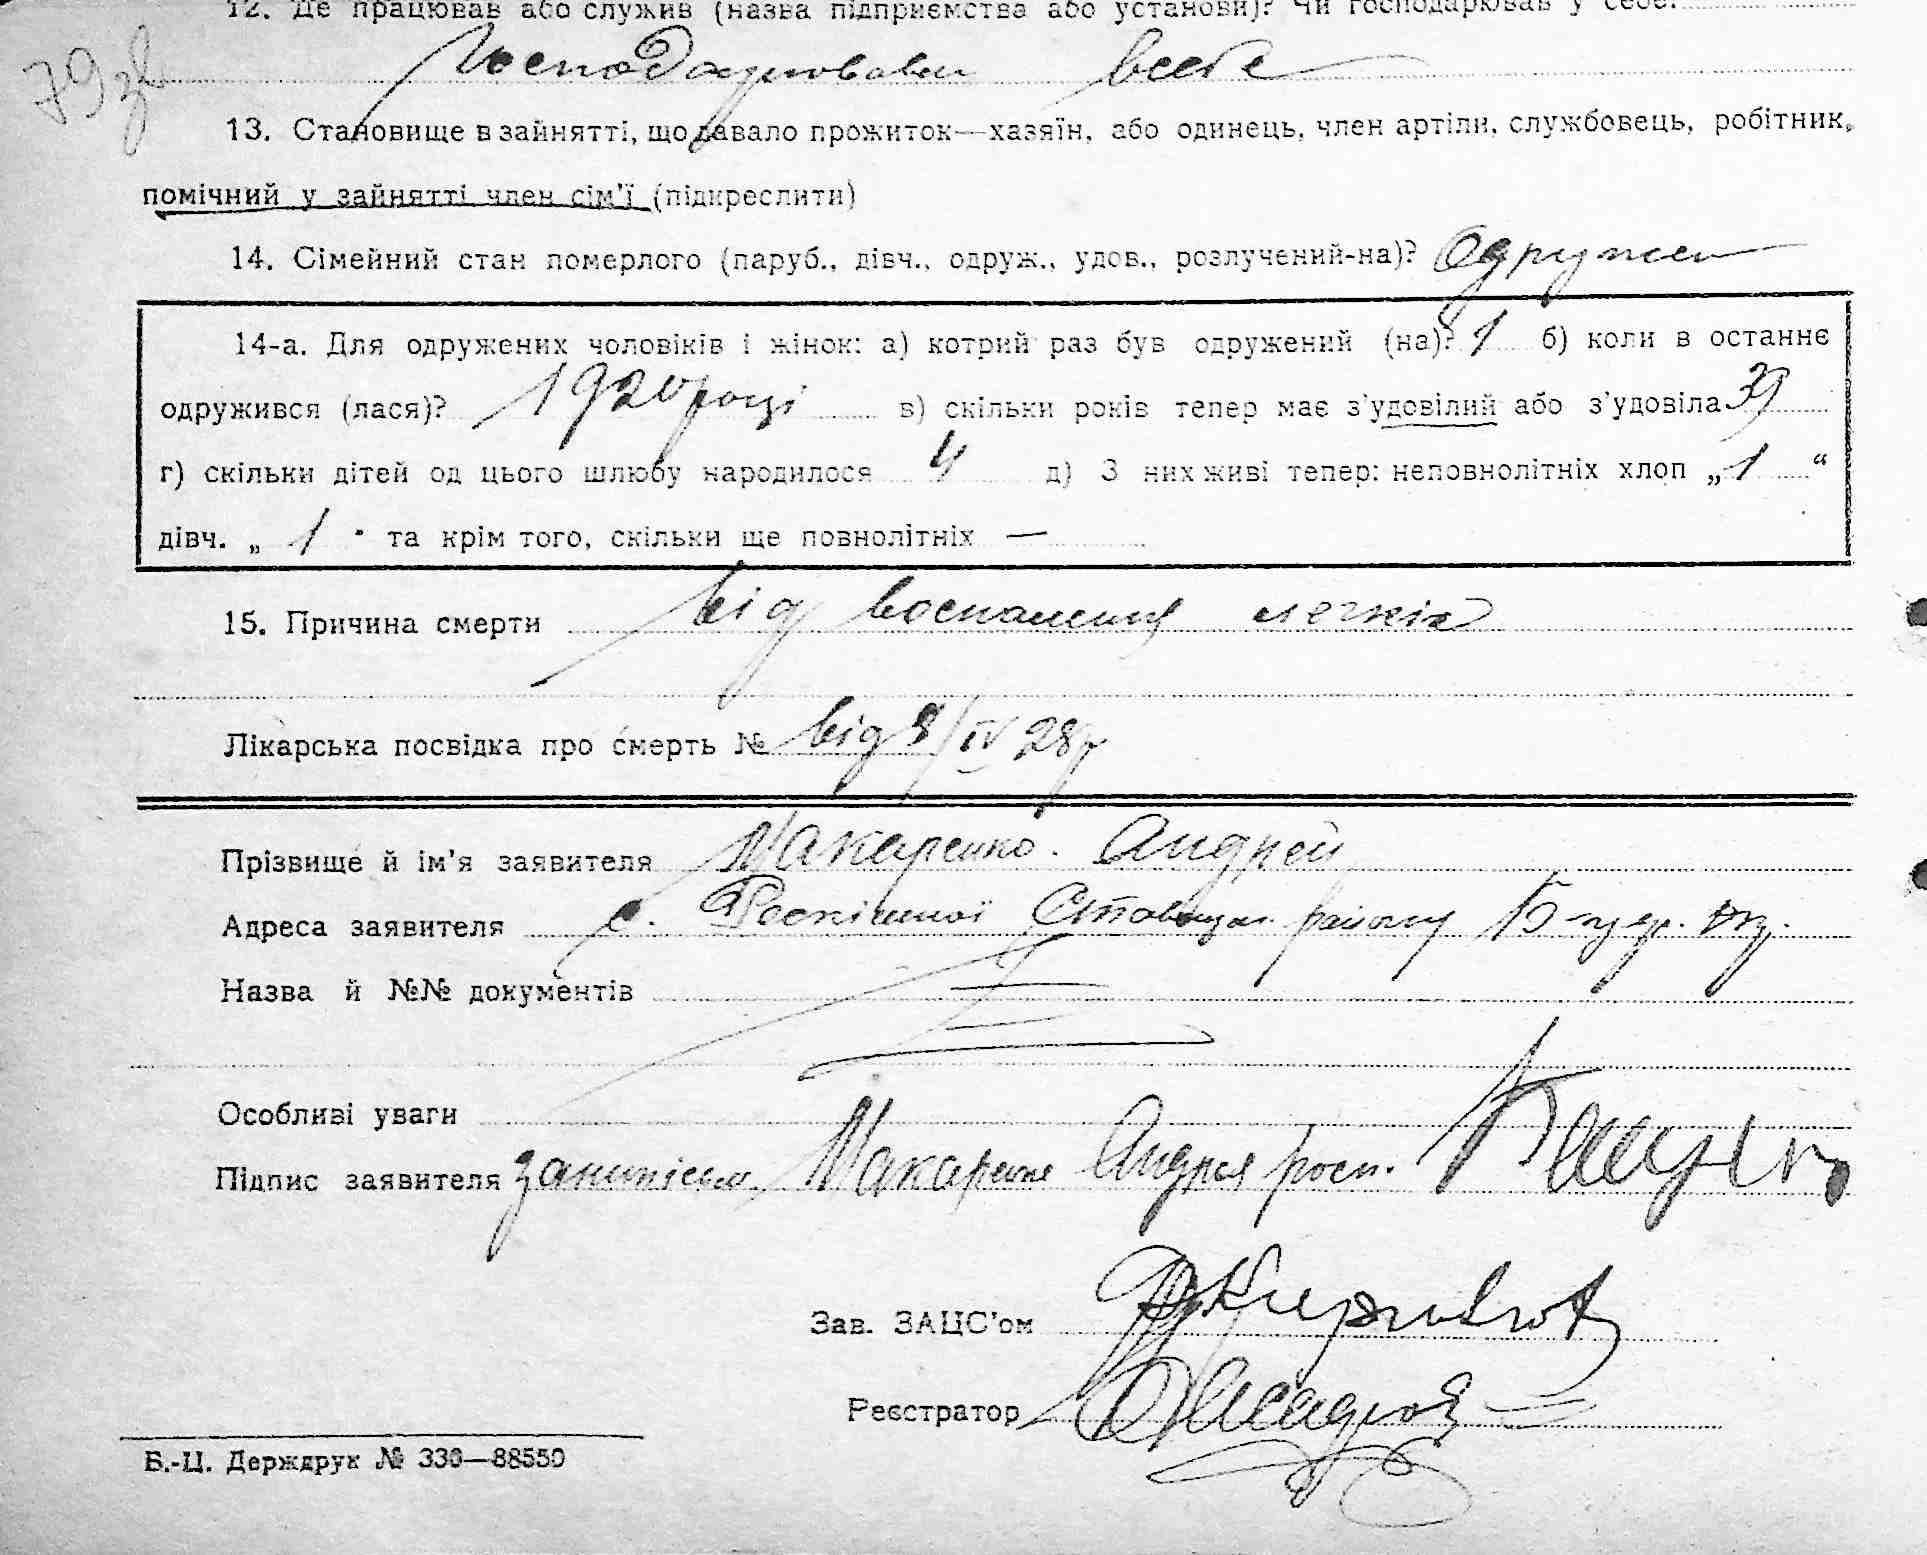 12. Де працював або служив (назва підприємства або установи)? Чи господарював у себе?
79 зв
Господарював в себе
13. Становище в зайнятті, що давало прожиток—хазяїн, або одинець, член артіли, службовець, робітник,
помічний у зайнятті член сім'ї (підкреслити)
14. Сімейний стан померлого (паруб., дівч., одруж., удов., розлучений-на)? Одружен
14-а. Для одружених чоловіків і жінок: а) котрий раз був одружений (на)? 1 б) коли в останнє
одружився (лася)? 1920 році в) скільки років тепер має з'удовілий або з'удовіла 39
г) скільки дітей од цього шлюбу народилося 4 д) З них живі тепер: неповнолітніх хлоп „ 1 “
дівч. „ 1 " та крім того, скільки ще повнолітніх —
15. Причина смерти від воспаления легкіх
Лікарська посвідка про смерть № від 8/IV 28р
Прізвище й ім'я заявителя Макаренко Андрей
Адреса заявителя с. Роскішної Ставищан. району Б-церк. окр.
Назва й №№ документів
Особливі уваги
Підпис заявителя Макаренко Андрея росп.
Зав. ЗАЦС'ом
Реєстратор
Б.-Ц. Держдрук № 330—88550